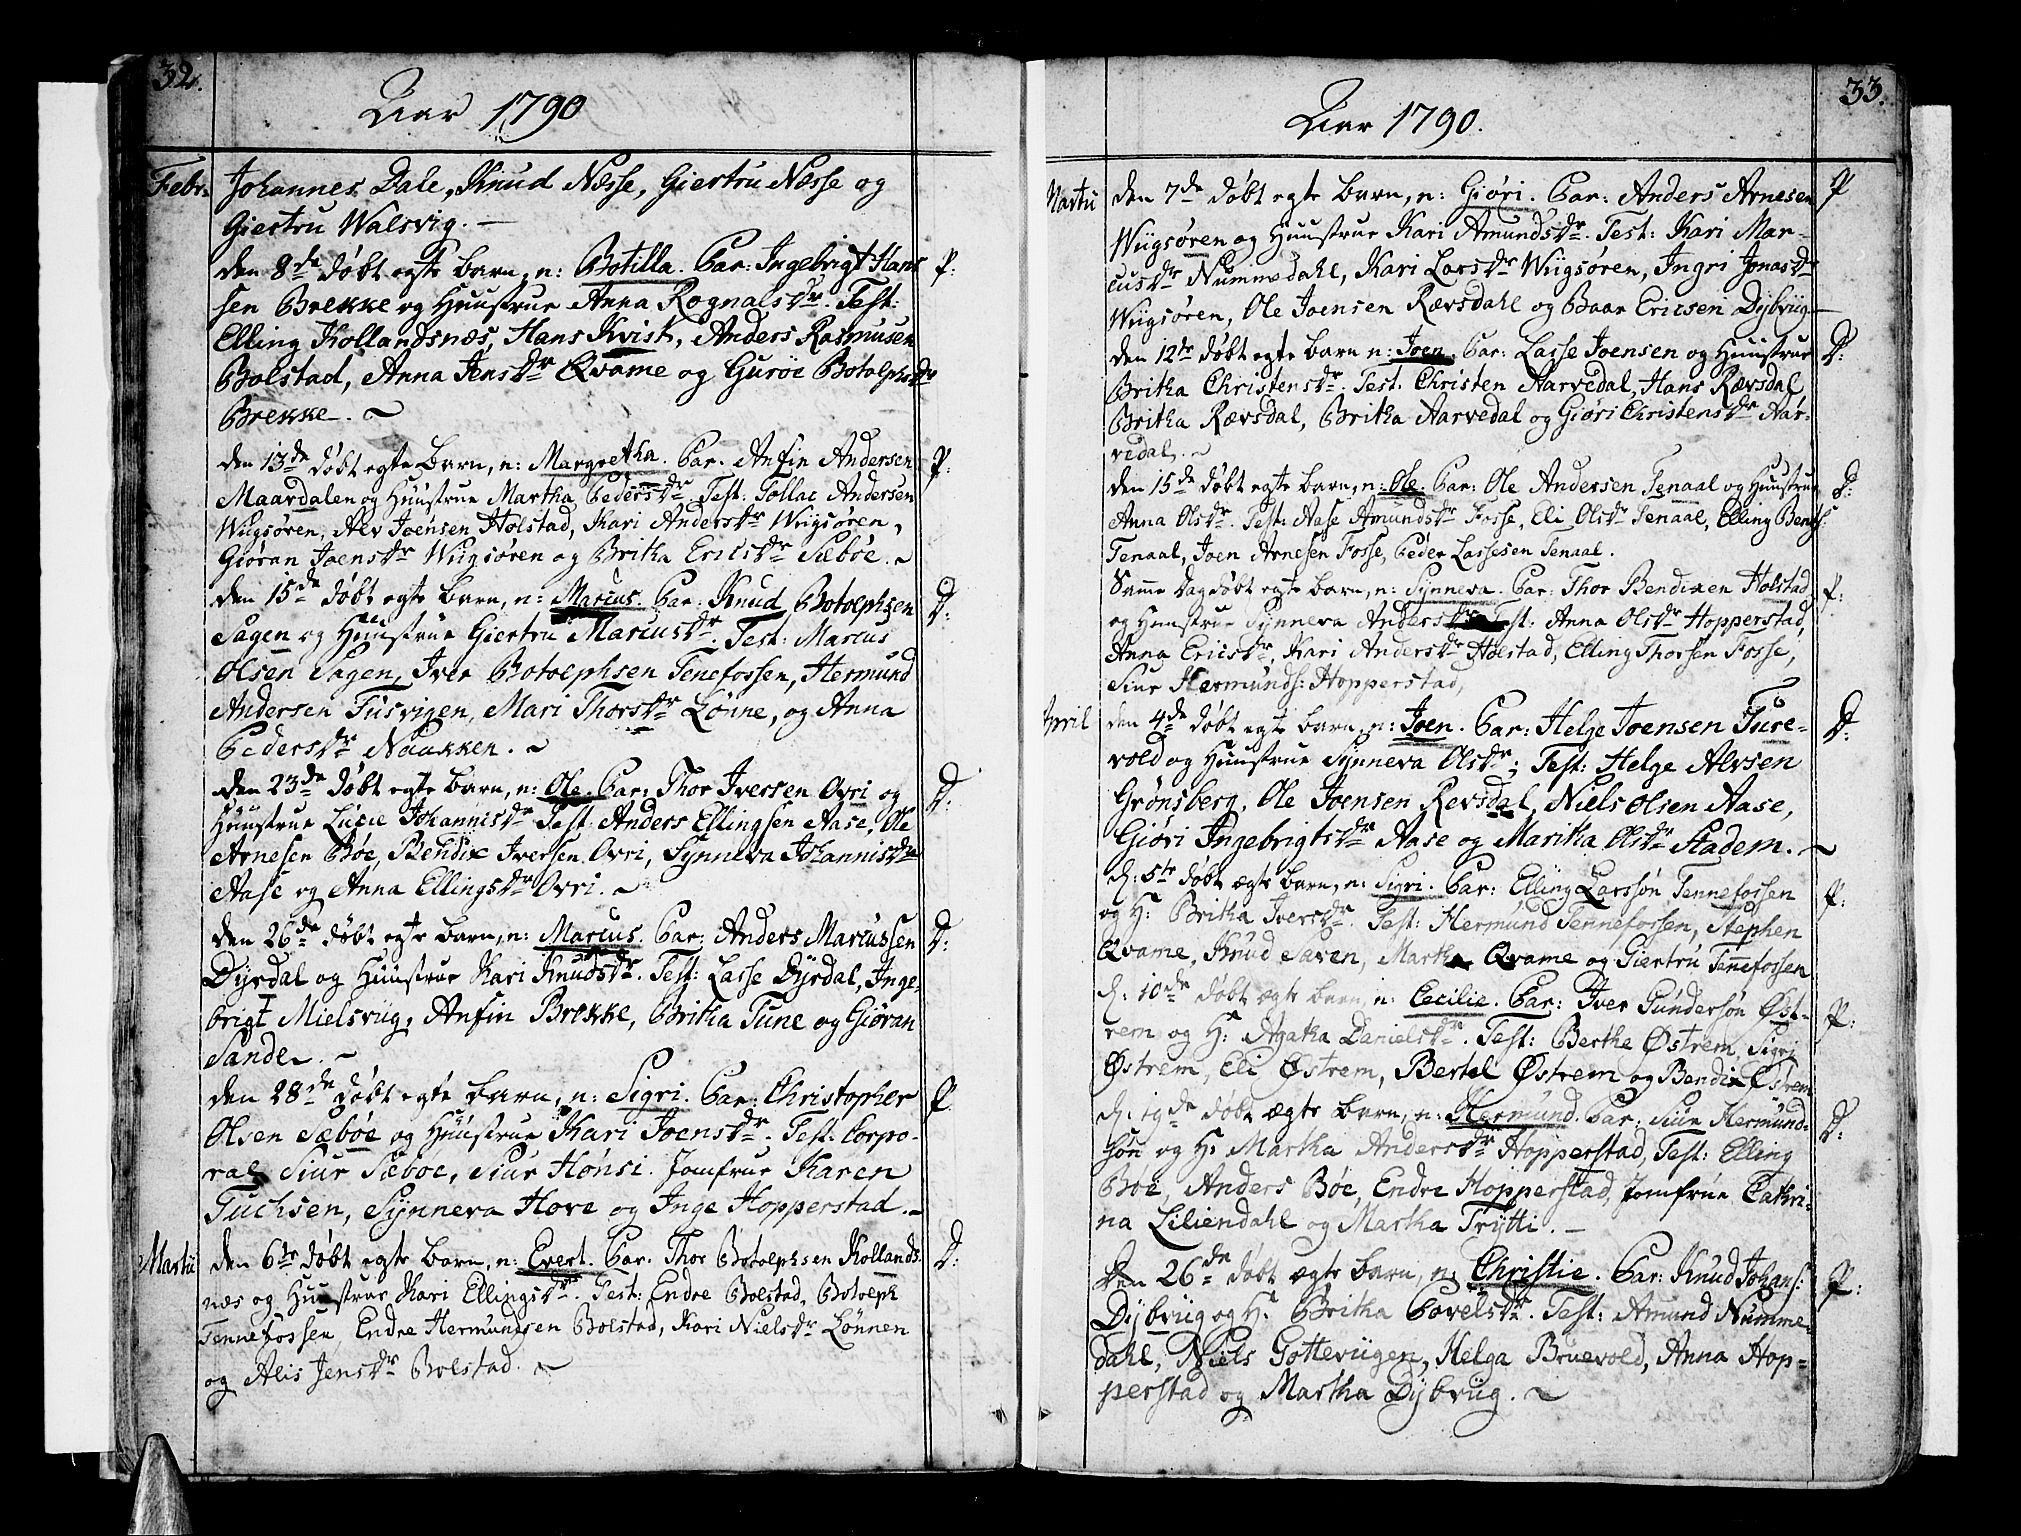 32.
Aar 1790
Febr. Johannes Dale, Knud Næsse, Giertru Næsse og
Giertru Walsvig. —
den 8de døbt egte barn, n: Botilla. Par: Ingebrigt Han-
sen Brekke og Huustrue Anna Rognalsdr. Test: P:
Elling Hollandsnæs, Hans Kvist, Anders Rasmusen
Bolstad, Anna Jensdr Qvame og Guroe Botolphsdr
Brekke. ~
den 13de døbt egte Barn, n: Margretha. Par. Anfin Andersen P:
Maardalen og Huustrue Martha Pedersdr. Test: Tollac Andersen
Wiigsøren, Alv Joensen Holstad, Kari Andersdr Wiigsøren,
Giøran Joensdr Wiigsøren og Britha Ericsdr Sæbøe. ~
den 15de døbt egte barn, n: Marcus. Par: Knud Botolphsen D:
Sagen og Huustrue Giertru Marcusdr. Test: Marcus
Olsen Sagen, Iver Botolphsen Tenefossen, Hermund
Andersen Tusvigen, Mari Thorsdr Lønne, og Anna
Pedersdr Naakken. ~
den 23de døbt egte barn, n: Ole. Par: Thor Iversen Ovri og D:
Huustrue Lucie Johannisdr Test: Anders Ellingsen Aase, Ole
Arnesen Bøe, Bendix Iversen Ovri, Synneva Johannisdr
Aase og Anna Ellingsdr Ovri. ~
den 26de døbt egte barn, n: Marcus. Par: Anders Marcussen D:
Dyrdal og Huustrue Kari Knudsdr. Test: Lasse Dyrdal, Inge-
brigt Mielsviig, Anfin Brekke, Britha Tune og Giøran
Sande. ~
den 28de døbt egte barn, n: Sigri. Par: Christopher P
Olsen Sæbøe og Huustrue Kari Joensdr. Test: Corpo-
ral Siur Sæbøe, Siur Hønsi. Jomfrue Karen
Tuchsen, Synneva Hove og Inge Hopperstad. ~
Martii den 6te døbt egte barn, n: Evert. Par. Thor Botolphsen Hollands- D:
næs og Huustrue Kari Ellingsdr. Test: Endre Bolstad, Botolph
Tennefossen, Endre Hermundsen Bolstad, Kari Nielsdr Lønnen
og Alis Jensdr Bolstad. ~
33.
Aar 1790.
Martii den 7de døbt egte barn, n: Giøri. Par: Anders Arnesen P
Wiigsøren og Huustrue Kari Amundsdr. Test: Kari Mar-
cusdr Nummedahl, Kari Larsdr Wiigsøren, Ingri Jonasdr
Wiigsøren, Ole Joensen Rævsdahl og Baar Ericsen Dybviig —
den 12te døbt egte barn n: Joen. Par: Lasse Joensen og Huustrue D:
Britha Christensdr. Test. Christen Aarvedal, Hans Rævsdal
Britha Rævsdal, Britha Aarvedal og Giøri Christensdr Aar-
vedal. ~
den 15de døbt egte barn, n: Ole. Par: Ole Andersen Tenaal og Huustrue D:
Anna Olsdr. Test: Aase Amundsdr Fosse, Eli Olsdr Tenaal, Elling Bents:
Tenaal, Joen Arnesen Fosse, Peder Lassesen Tenaal.
Samme Dag døbt egte barn, n: Synneva. Par: Thor Bendixen Holstad P:
og Huustrue Synneva Andersdr Test: Anna Olsdr Hopperstad,
Anna Ericsdr, Kari Andersdr Holstad, Elling Thorsen Fosse,
Siur Hermunds: Hopperstad,
April den 4de døbt egte barn, n: Joen. Par: Helge Joensen Ture- D:
vold og Huustrue Synneva Olsdr; Test: Helge Alvsen
Grønsberg, Ole Joensen Revsdal, Niels Olsen Aase,
Giøri Ingebrigtsdr Aase og Maritha Olsdr Stadem. ~
d: 5te døbt ægte barn, n: Sigri. Par: Elling Larssøn Tennefossen P:
og H: Britha Iversdr. Test: Hermund Tennefossen, Stephen
Qvame, Knud Saven, Martha Qvame og Giertru Tennefossen
d: 10de døbt ægte barn, n: Cecilie. Par: Iver Gundersøn Øst- P:
rem og H: Agatha Danielsdr. Test: Berthe Østrem, Sigri
Østrem, Eli Østrem, Bertel Østrem og Bendix Østrem
d: 19de døbt ægte barn, n: Hermund. Par: Siur Hermund- D:
søn og H: Martha Andersdr Hopperstad, Test: Elling
Bøe, Anders Bøe, Endre Hopperstad, Jomfrue Cathri-
na Liliendahl og Martha Trytti. —
den 26de døbt ægte barn, n: Christie. Par: Knud Johans: P:
Dybviig og H. Britha Povelsdr. Test: Amund Numme-
dahl, Niels Gotteviigen, Helga Bruevold, Anna Hop-
perstad og Martha Dybviig. ~